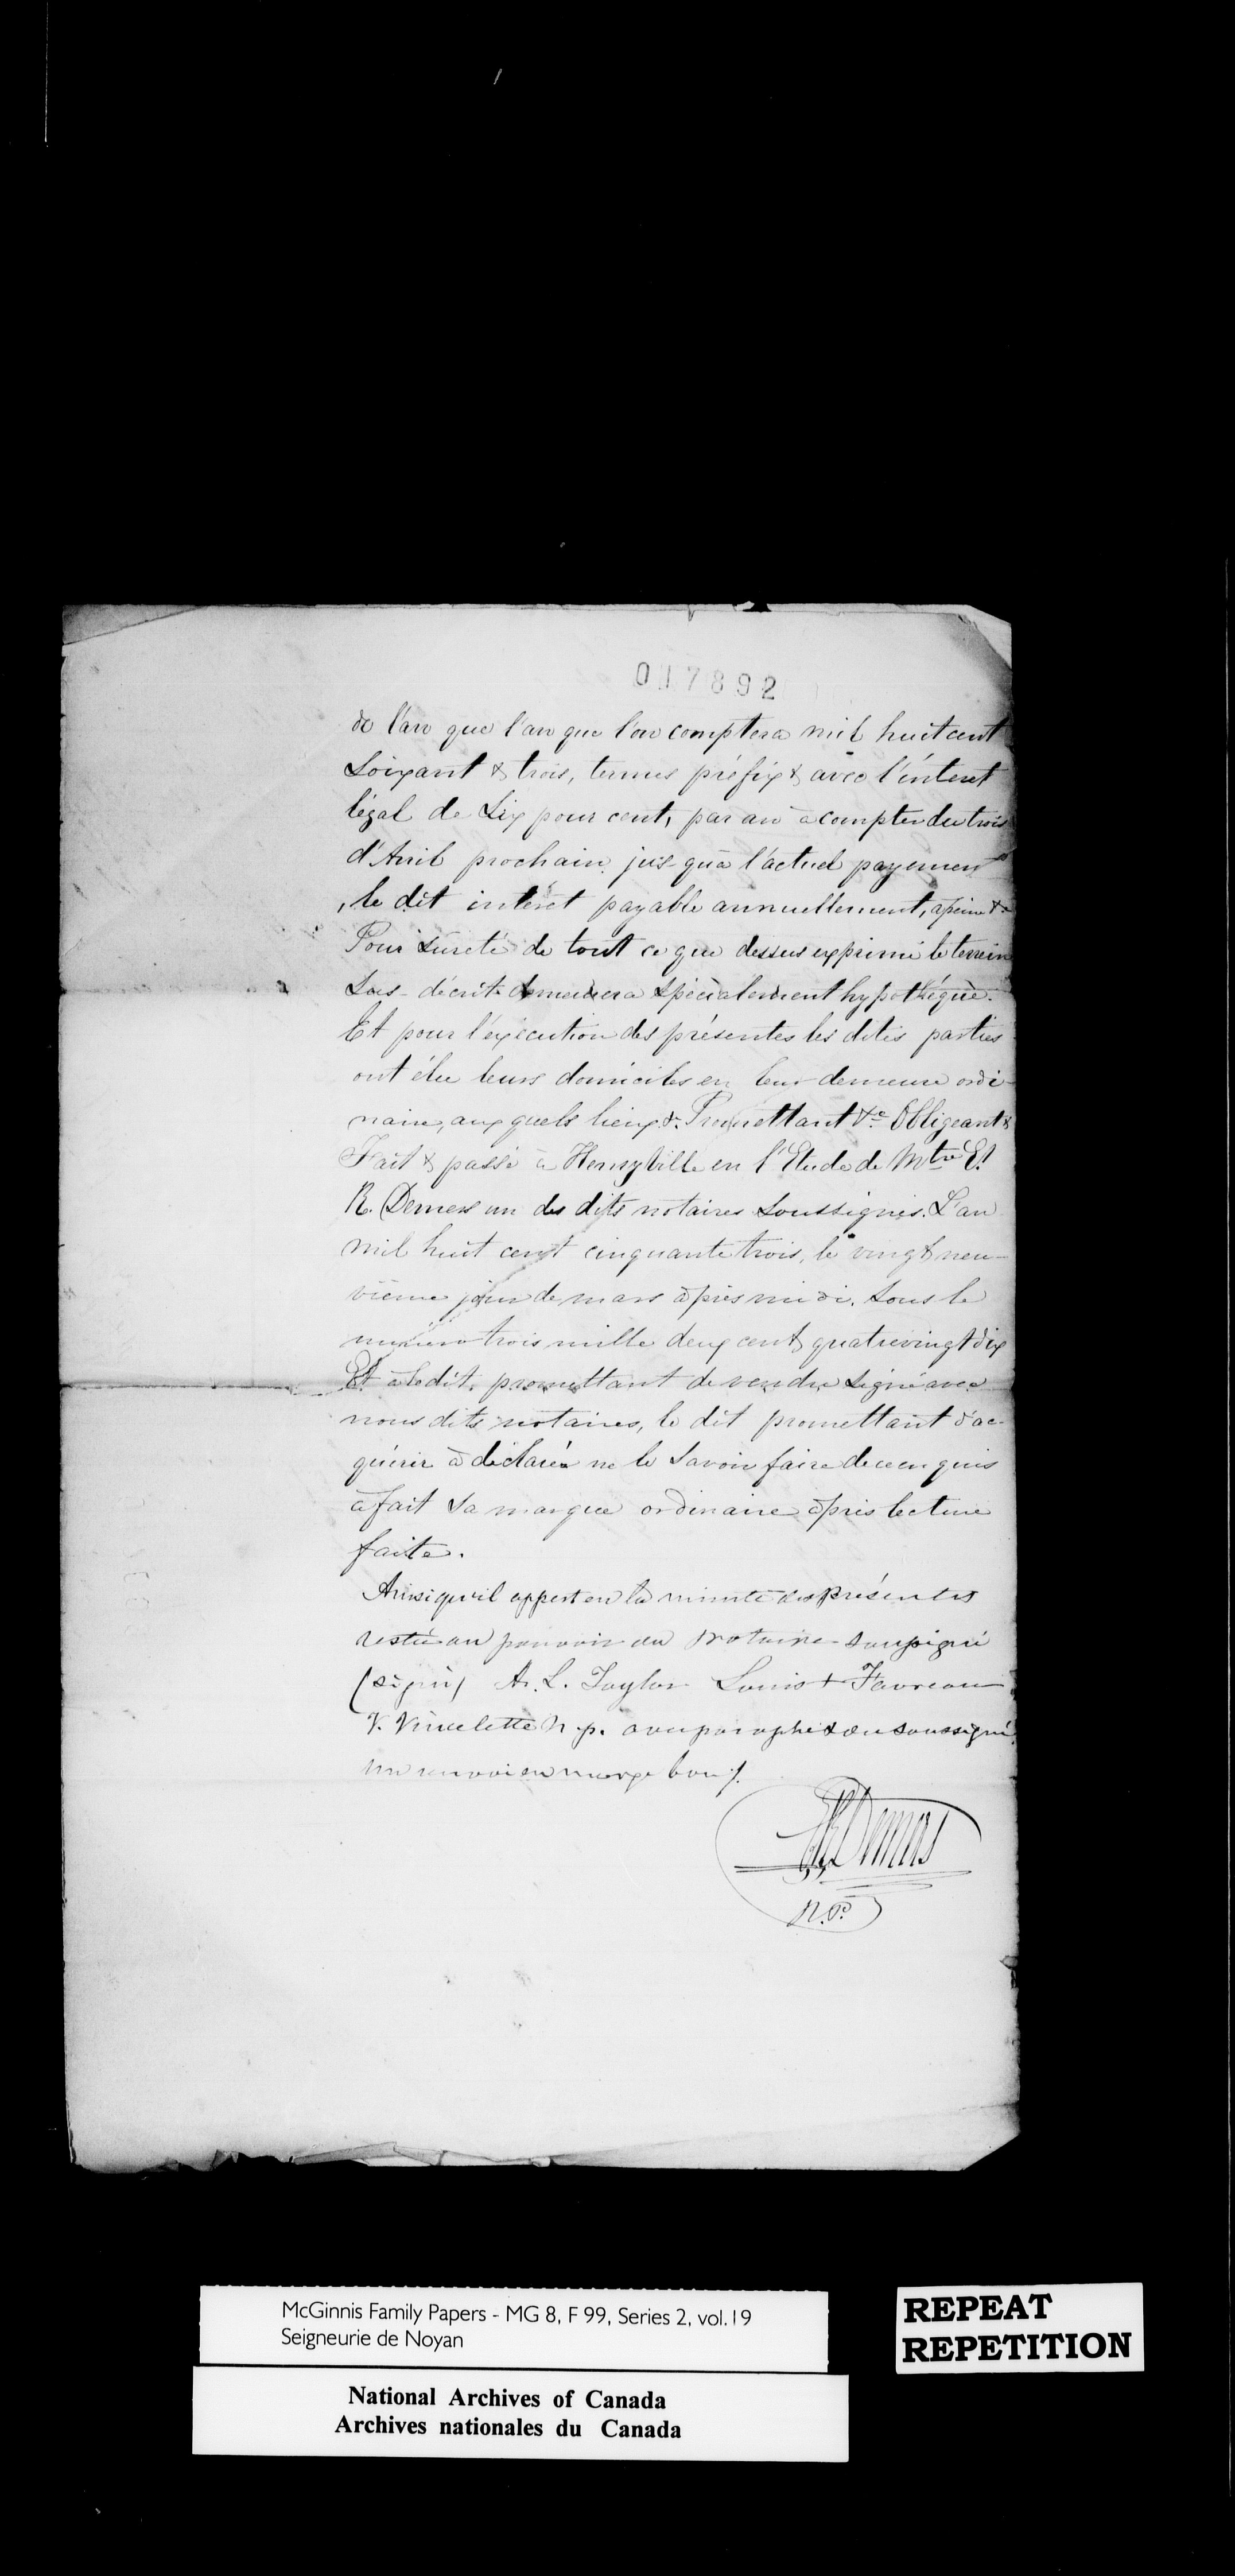 017892
de l'an que l'an que l'on comptera mil huit cent
Soixant & trois, termes préfix & avec l'interet
légal de Six pour cent, par an à compter du trois
d'Avril prochain jus qu'à l'actuel payement
, le dit interet payable annuellement, apeine &c
Pour sureté de tout ce que dessus exprimé le terrein
Sus-décrit demeurera spécialement hypothéqué.
Et pour l'exécution des présentes les dites parties
ont élu leurs domiciles en leur demeure ordi-
naire, aux quels lieux &c. Promettant &c Obligeant &
Fait & passé à Henryville en l'Etude de Mtre Et
R. Demers un des dits notaires Soussignés. L'an
mil huit cent cinquante trois, le vingt neu-
vième jour de mars après midi. Sous le
numero trois mille deux cent quatrevingt dix
Et à le dit promettant de vendre Signé avec
nous dits notaires, le dit promettant d'ac-
quérir à déclaré ne le Savoir faire de ce enquis
à fait Sa marque ordinaire après lecture
faite.
Ainsi qu'il appert en la minute des Présentes
restée au pouvoir du Notaire soussigné
(signé) A. L. Taylor Louis + Favreau
V. Vincelette N.p. avec paraphe & du soussigné
un renvoi en marge bon /.
ER Demers
N.P.
McGinnis Family Papers - MG 8, F 99, Series 2, vol.19
Seigneurie de Noyan
National Archives of Canada
Archives nationales du Canada
REPEAT
REPETITION